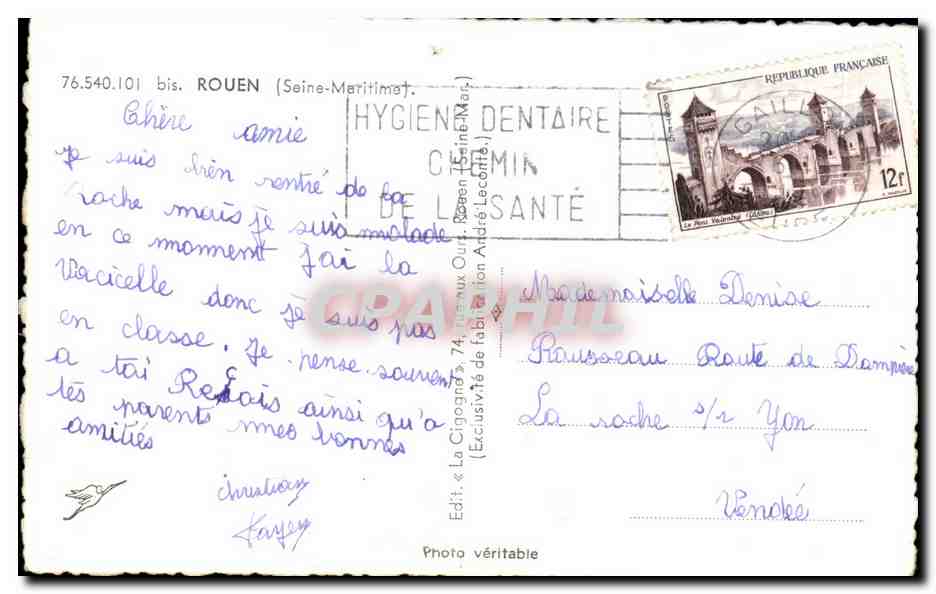 76.540.101 bis. ROUEN (Seine-Maritime).
Chère amie
Je suis bien rentré de la
roche mais je suis malade
en ce moment j'ai la
Varicelle donc je suis pas
en classe. Je pense souvent
a toi Reçois ainsi qu'a
tes parents mes bonnes
amitiés
christian
Photo véritable
Edit. « La Cigogne », 74, rue aux Ours, Rouen (Seine-Mar.)
(Exclusivité de fabrication André Leconte.)
HYGIENE DENTAIRE
CHEMIN
DE LA SANTÉ
REPUBLIQUE FRANÇAISE
12f
Le Pont Valentré (Cahors)
GAILL
CPARPHIL
Mademoiselle Denise
Rousseau Route de Dampierre
La roche s/r Yon
Vendée